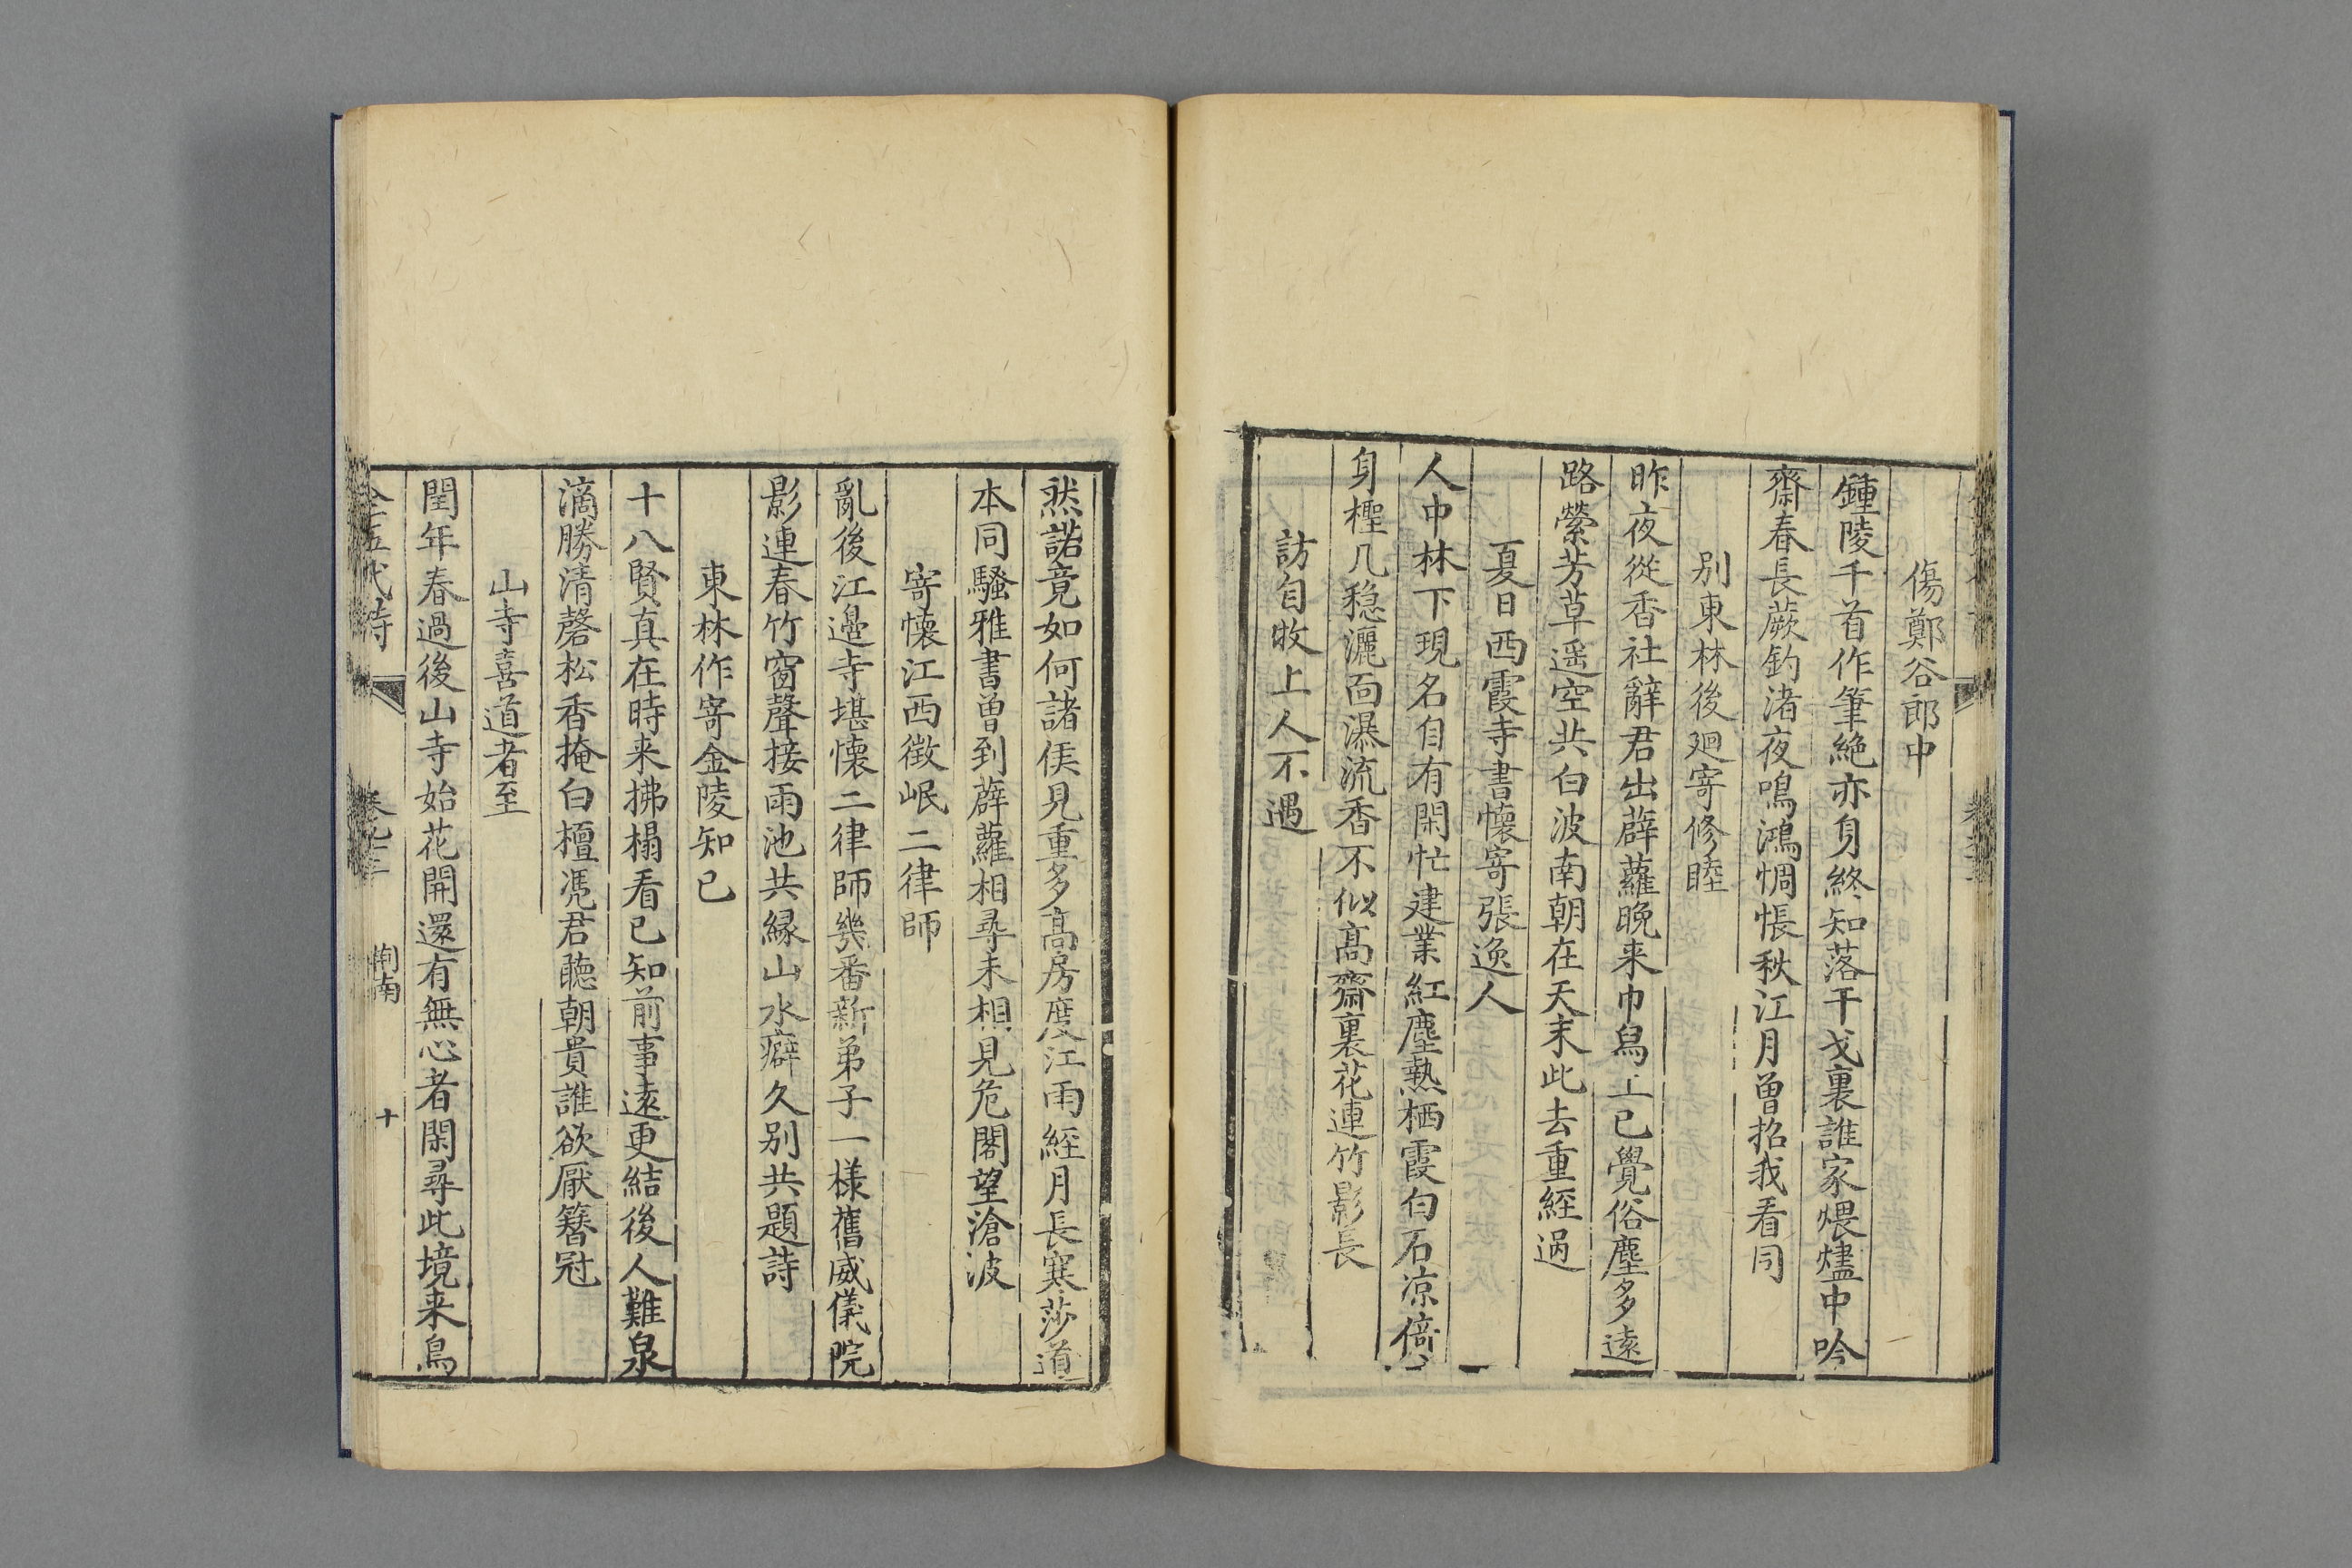 傷鄭谷郎中
鍾陵千首作筆絶亦身終知落干戈裏誰家煨燼中吟
齋春長蕨釣渚夜鳴鴻惆悵秋江月曽招我看同
别東林後廻寄修睦
昨夜從香社辭君出薜蘿晩来巾舄上已覺俗塵多遠
路縈芳草遥空共白波南朝在天末此去重經過
夏日西霞寺書懷寄張逸人
人中林下現名自有閑忙建業紅塵熱栖霞白石凉倚
身檉几穏灑面瀑流香不似髙齋裏花連竹影長
訪自牧上人不遇
然諾竟如何諸侯見重多髙房度江雨經月長寒莎道
本同騷雅書曽到薜蘿相尋未相見危閣望滄波
寄懷江西徴岷二律師
亂後江邊寺堪懷二律師幾番新弟子一様舊威儀院
影連春竹窗聲接雨池共縁山水癖久别共題詩
東林作寄金陵知已
十八賢真在時来拂榻看已知前事遠更結後人難泉
滴勝清磬松香掩白檀凴君聽朝貴誰欲厭簪冠
山寺喜道者至
閏年春過後山寺始花開還有無心者閑尋此境来鳥
全五代詩 卷 荆南 十